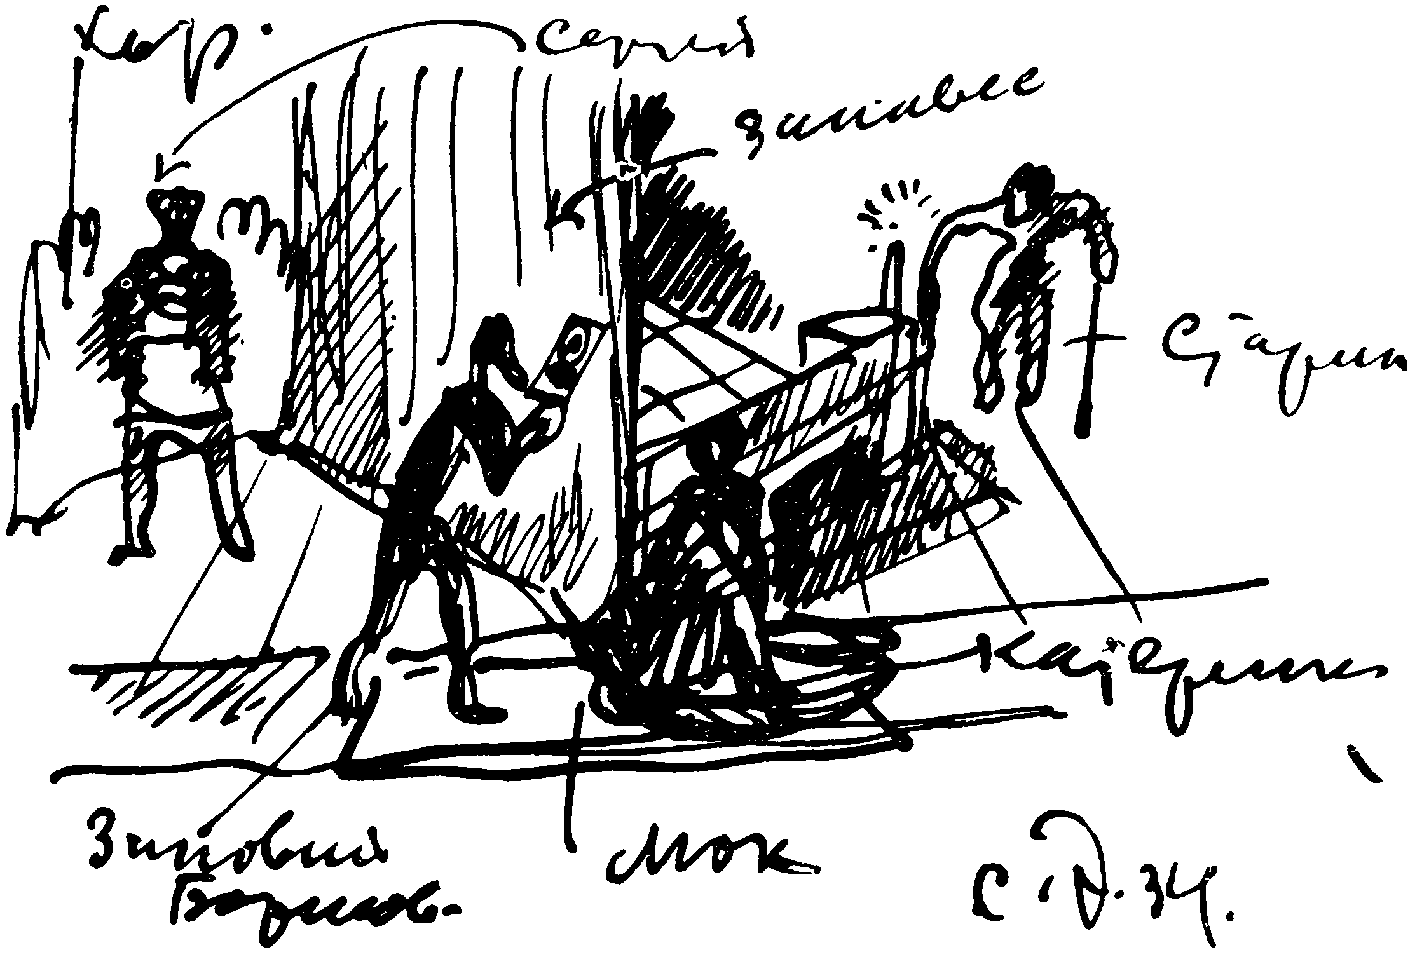 хор.
Сергей
занавес
Старик
Катерина
Зиновий
Борисов.
люк
С. Д. 34.